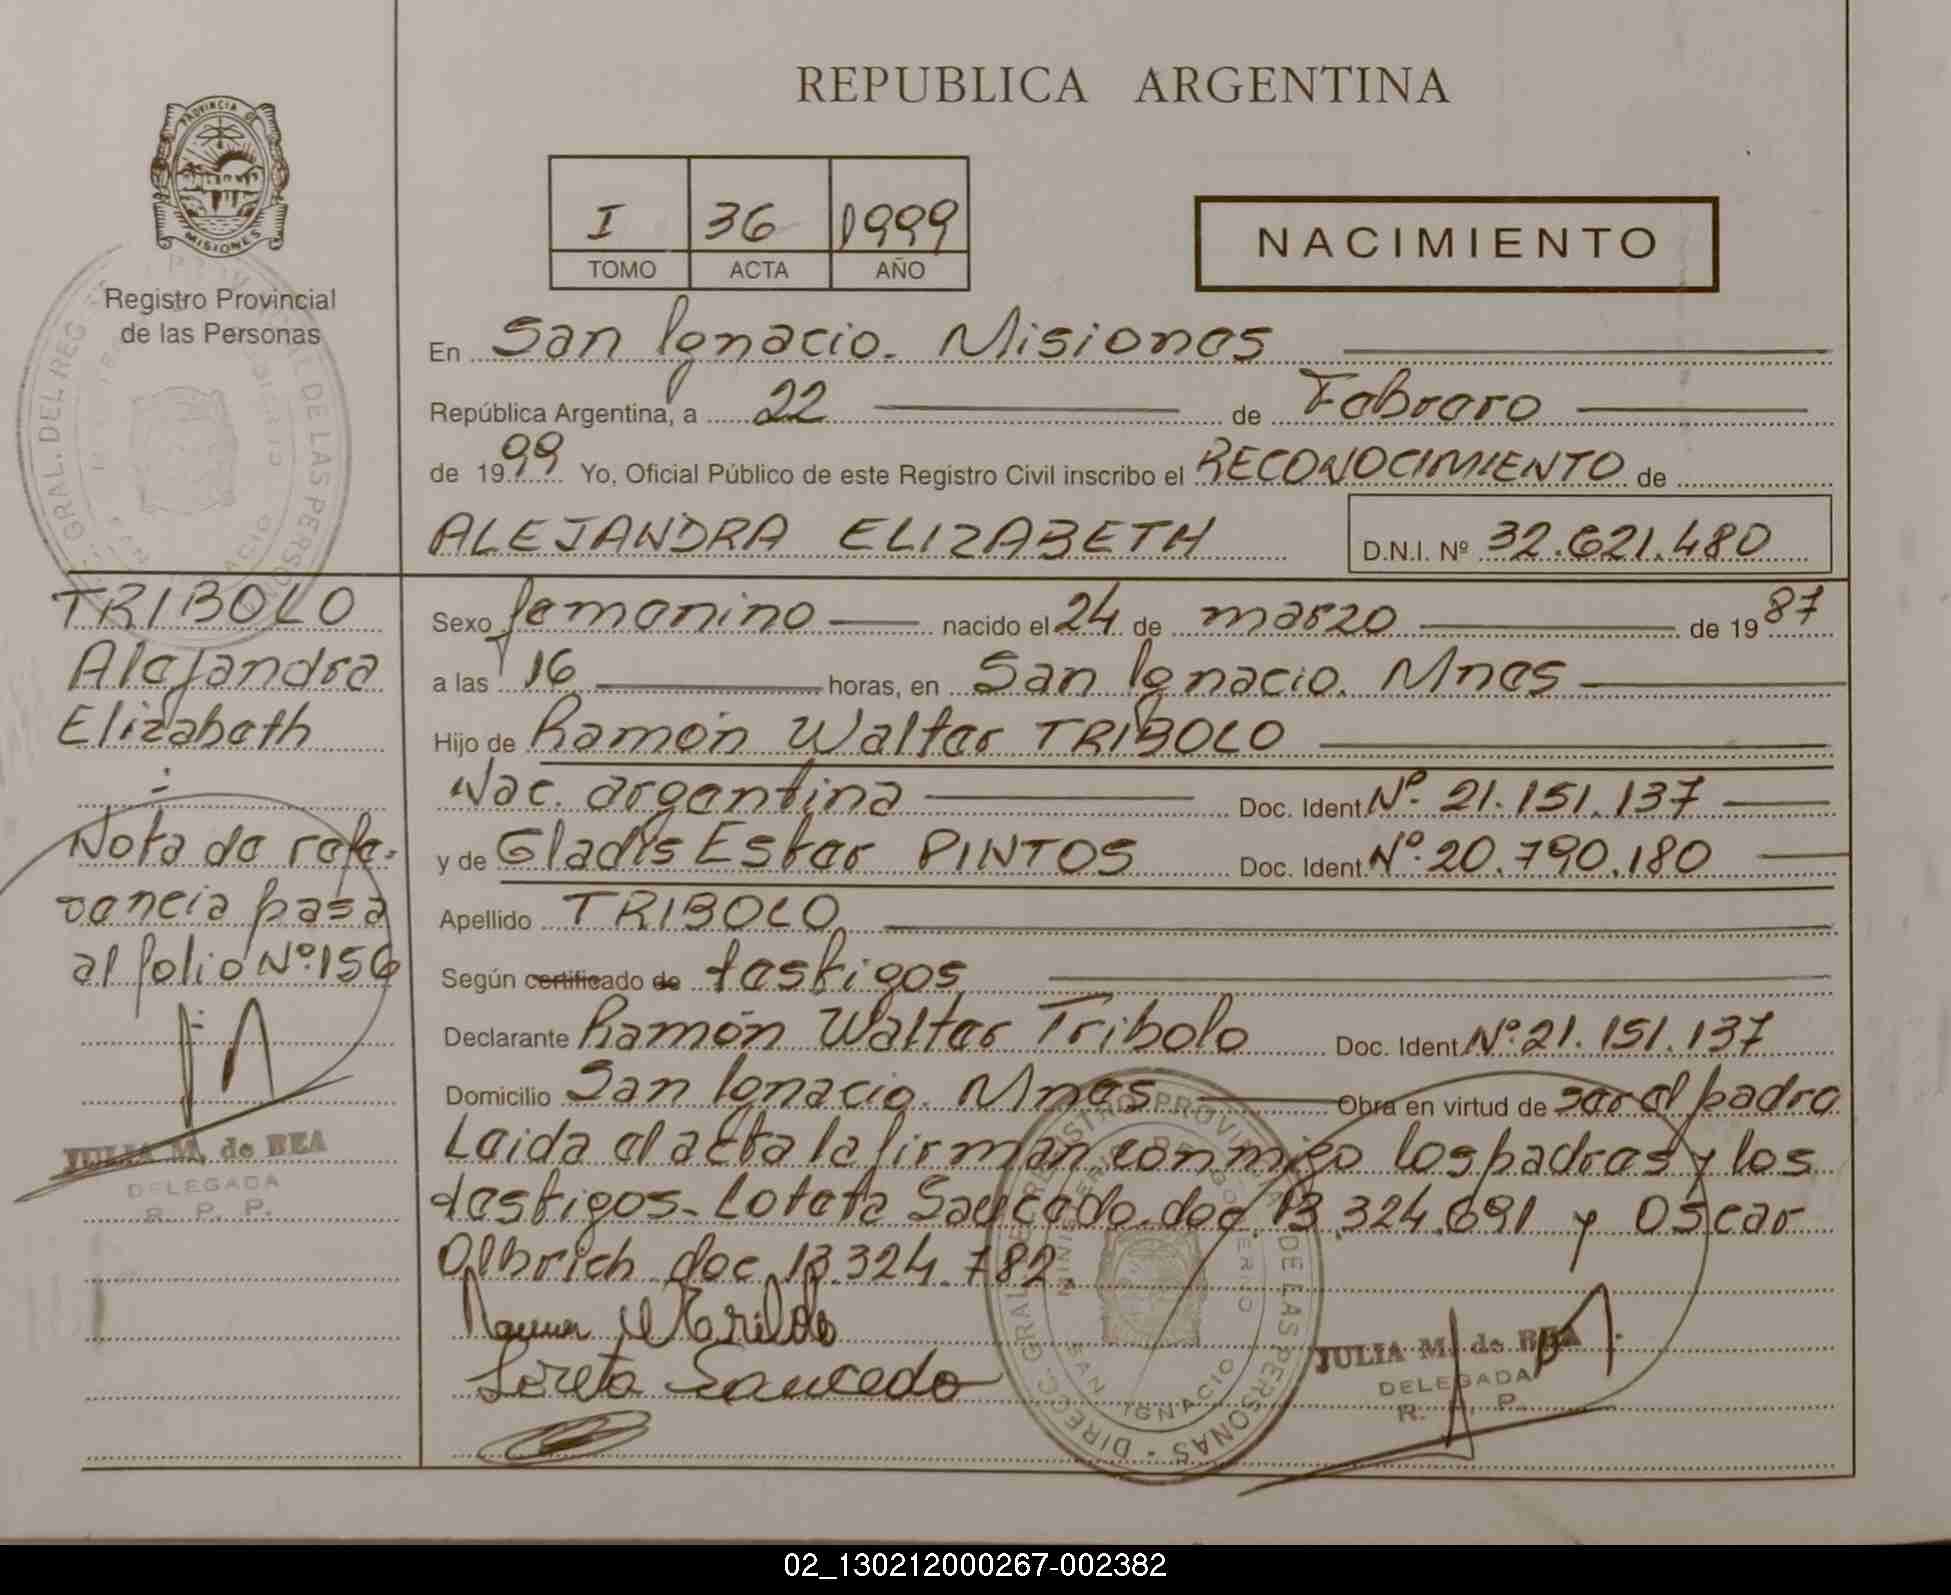 REPUBLICA ARGENTINA
PROVINCIA DE
MISIONES
Registro Provincial
de las Personas
I 36 1999
TOMO ACTA AÑO
NACIMIENTO
En San Ignacio. Misiones
República Argentina, a 22 de Febrero
de 1999 Yo, Oficial Público de este Registro Civil inscribo el RECONOCIMIENTO de
ALEJANDRA ELIZABETH D.N.I. Nº 32.621.480
TRIBOLO
Alejandra
Elizabeth
Nota de refe-
rencia pasa
al folio Nº 156
JULIA M. de BEA
DELEGADA
R. P. P.
Sexo femenino nacido el 24 de marzo de 1987
a las 16 horas, en San Ignacio. Mnes
Hijo de Ramón Walter TRIBOLO
Nac. argentina Doc. Ident. Nº. 21.151.137
y de Gladis Ester PINTOS Doc. Ident. Nº. 20.790.180
Apellido TRIBOLO
Según certificado de testigos
Declarante Ramón Walter Tribolo Doc. Ident. Nº. 21.151.137
Domicilio San Ignacio. Mnes Obra en virtud de ser el padre
Leida el acta la firman conmigo los padres y los
testigos- Loreta Saucedo. doc. 13.324.691 y Oscar
Olbrich doc 13.324.782.
Loreta Saucedo
DIRECC. GRAL. DEL REGISTRO PROVINCIAL DE LAS PERSONAS
MINISTERIO DE GOBIERNO
SAN IGNACIO
JULIA M. de BEA
DELEGADA
R. P. P.
02_130212000267-002382